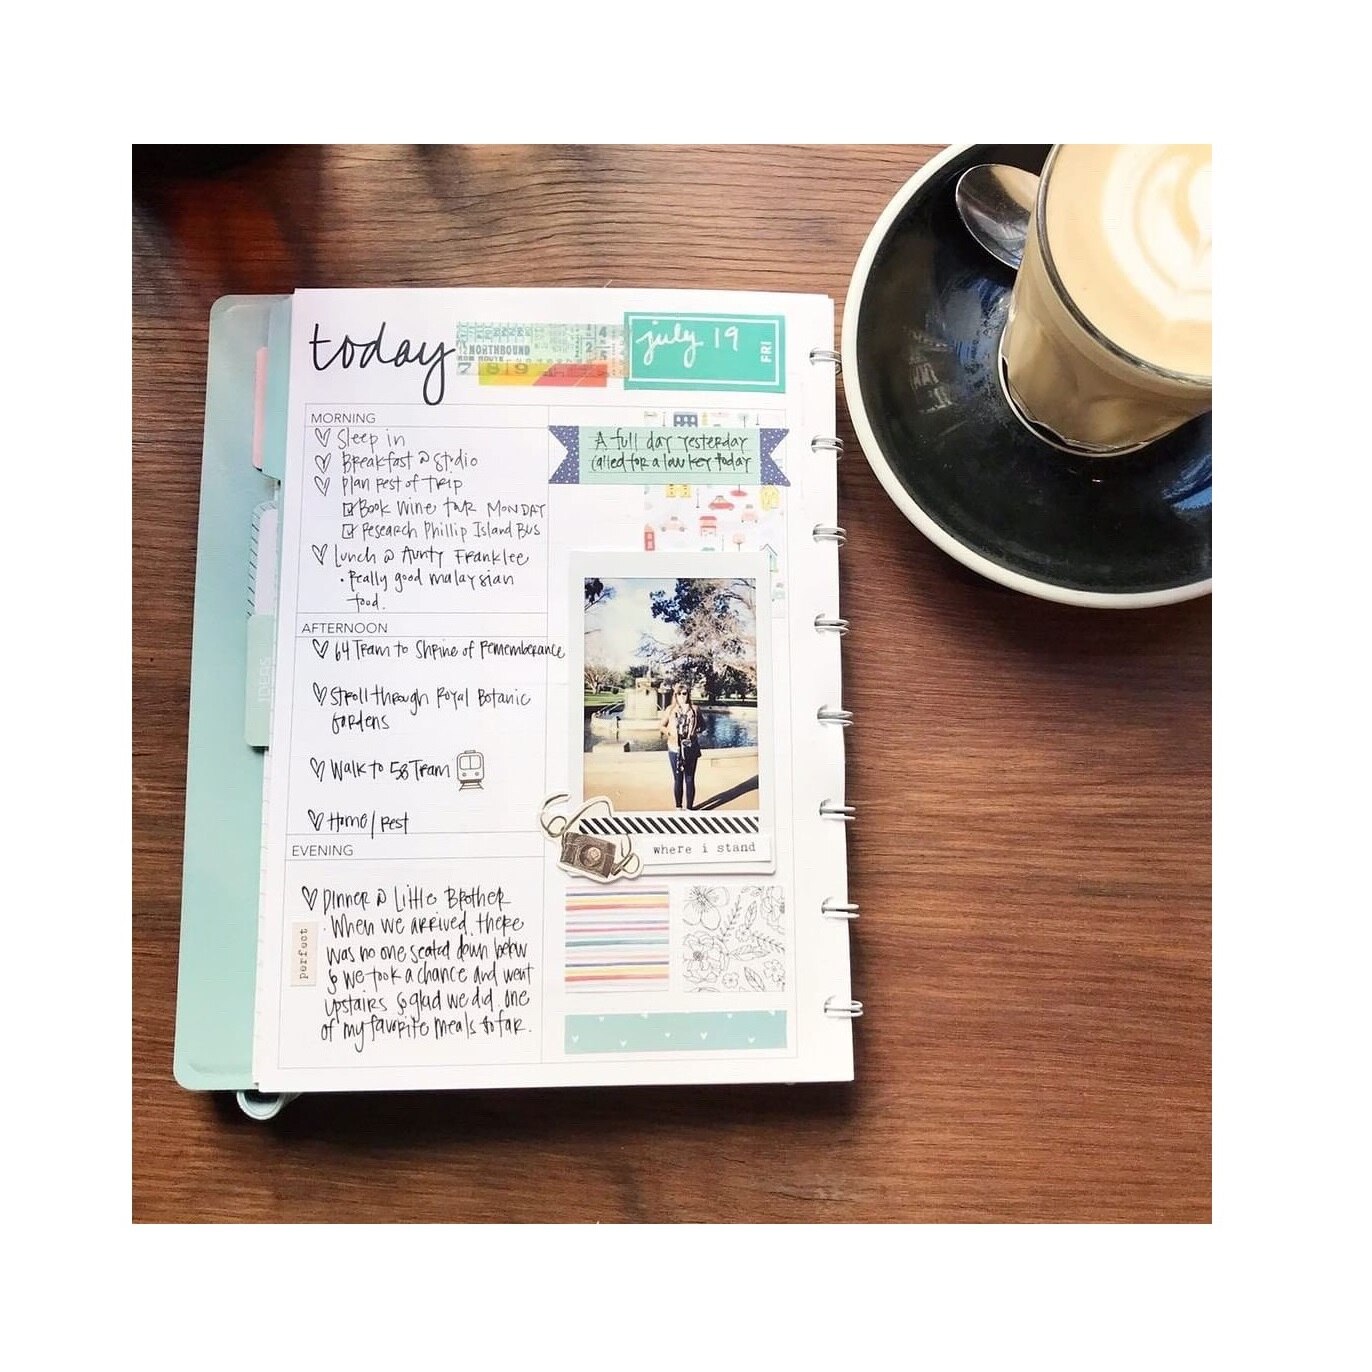 today
NORTHBOUND
7 8 9
july 19
FRI
MORNING
Sleep in
Breakfast @ Studio
Plan rest of Trip
Book Wine tour MONDAY
Research Phillip Island Bus
Lunch @ Aunty Franklee
• Really good malaysian
food.
A full day yesterday
called for a low key today
AFTERNOON
64 Tram to Shrine of Rememberance
Stroll through Royal Botanic
Gardens
Walk to 58 Tram
Home/Rest
where i stand
EVENING
Dinner @ Little Brother
· When we arrived, there
was no one seated down below
& we took a chance and went
upstairs & glad we did. One
of my favorite meals so far.
perfect
IDEAS